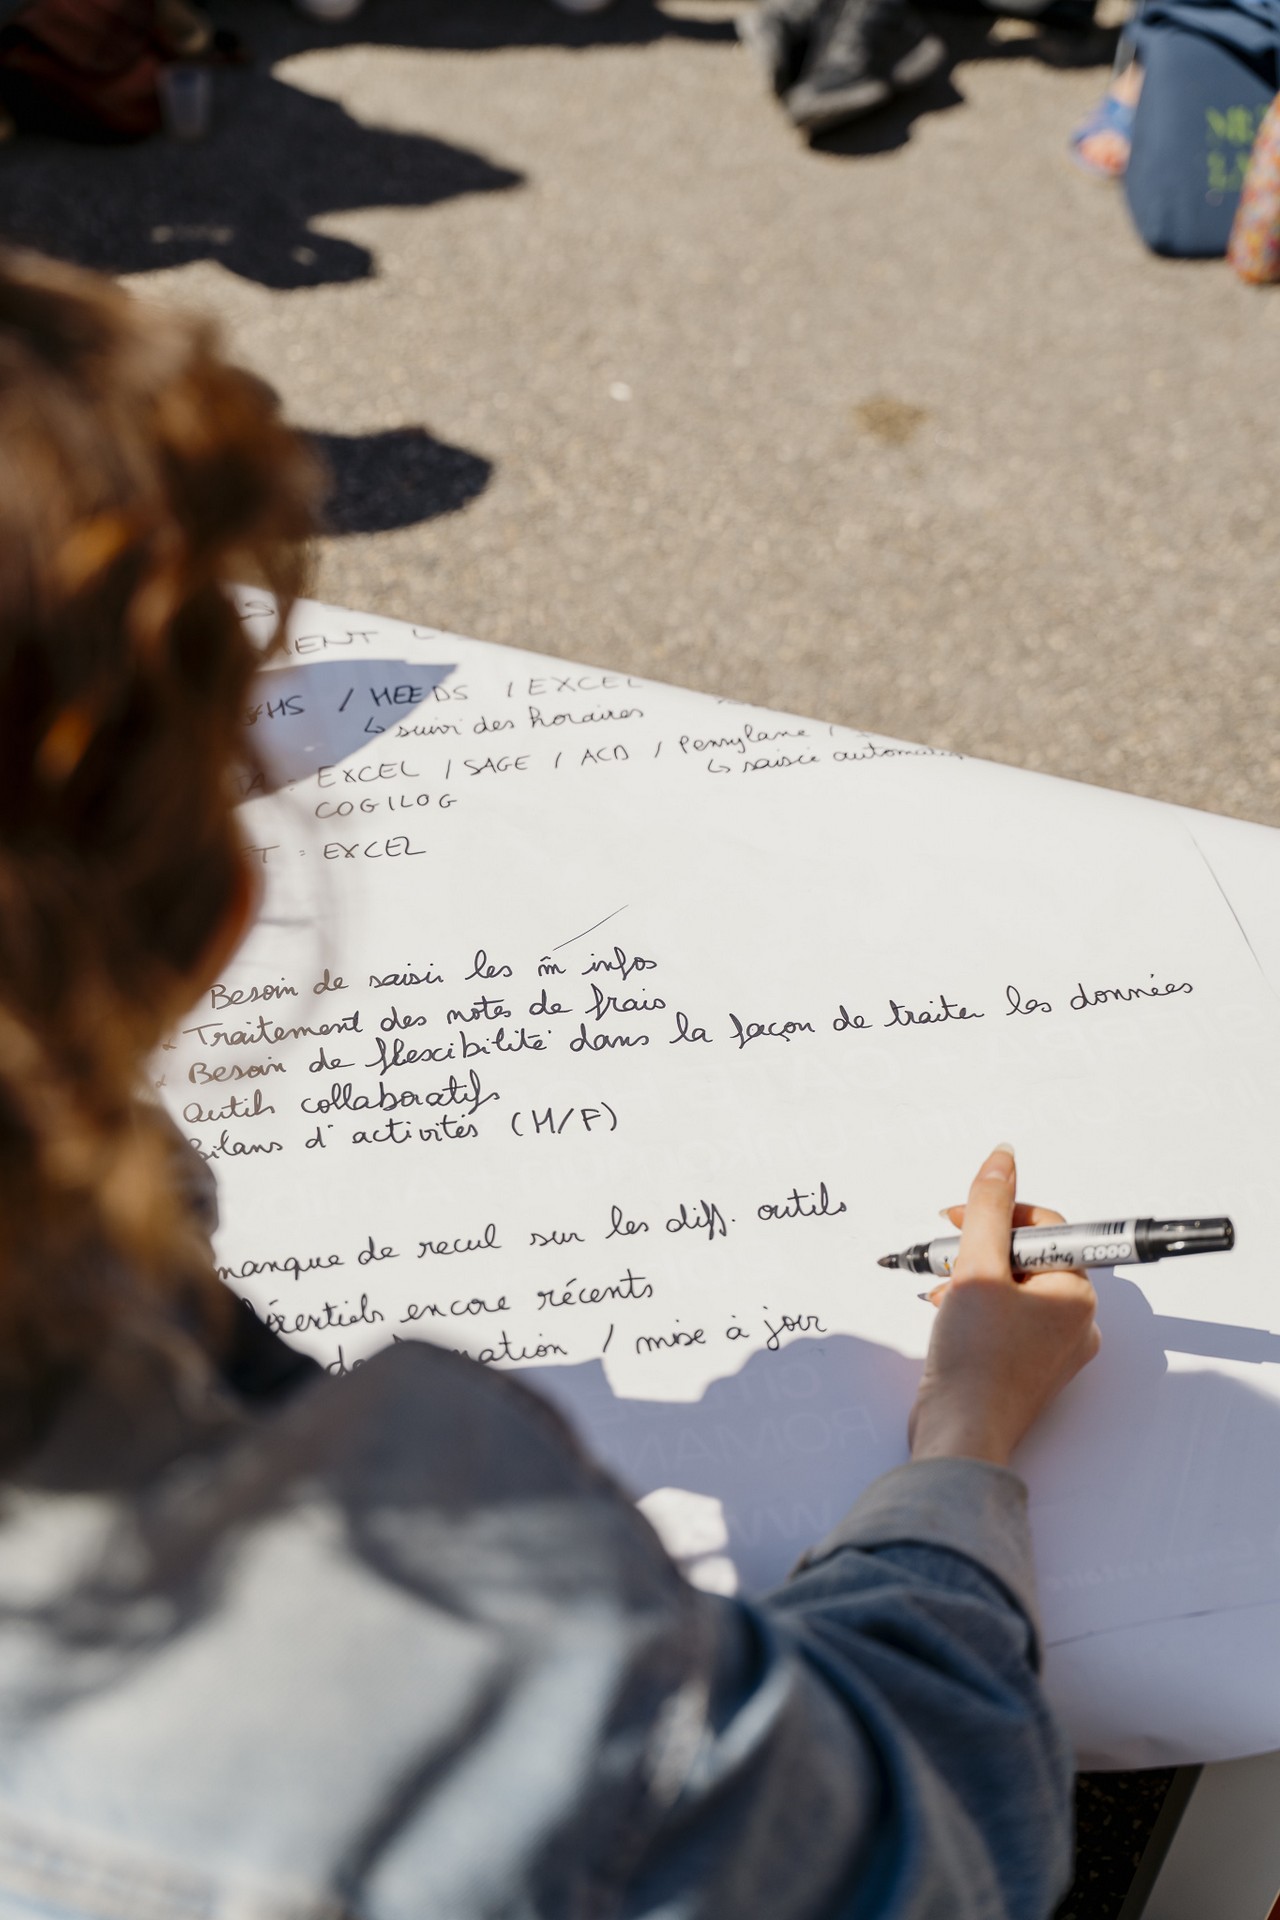 / MEEDS / EXCEL
↳ suivi des horaires
: EXCEL / SAGE / ACD / Pennylane /
↳ saisie
COGILOG
: EXCEL
Besoin de saisir les m̂ infos
Traitement des notes de frais
Besoin de flexcibilité dans la façon de traiter les données
Outils collaboratifs
Bilans d'activités (M/F)
manque de recul sur les diff. outils
encore récents
/ mise à jour
Marking 2000